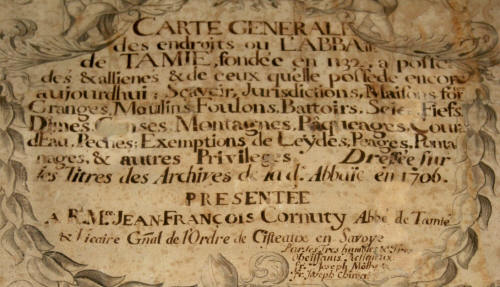 CARTE GENERALE
des endroits ou L'ABBAïe
de TAMIE, fondée en 1132, a possé
des & allienes & de ceux quelle possede encore
aujourdhui: Scavoir, Jurisdictions, Maisons for
Granges, Moulins Foulons, Battoirs, Scies, Fiefs,
Dimes, Censes, Montagnes, Pâquerages, Cour
d'Eau, Peches; Exemptions de Leydes, Peages, Ponta
nages, & autres Privileges, Dressée sur
les Titres des Archives de lad. Abbaïe en 1706.
PRESENTÉE
A Rd. Mre. JEAN-FRANÇOIS Cornuty Abbé de Tamié
& Vicaire Gñal de l'Ordre de Cisteaux en Savoye
Par ses Tres humbles & Tres
Obeissants Religieux
Fr. Joseph
Fr. Joseph